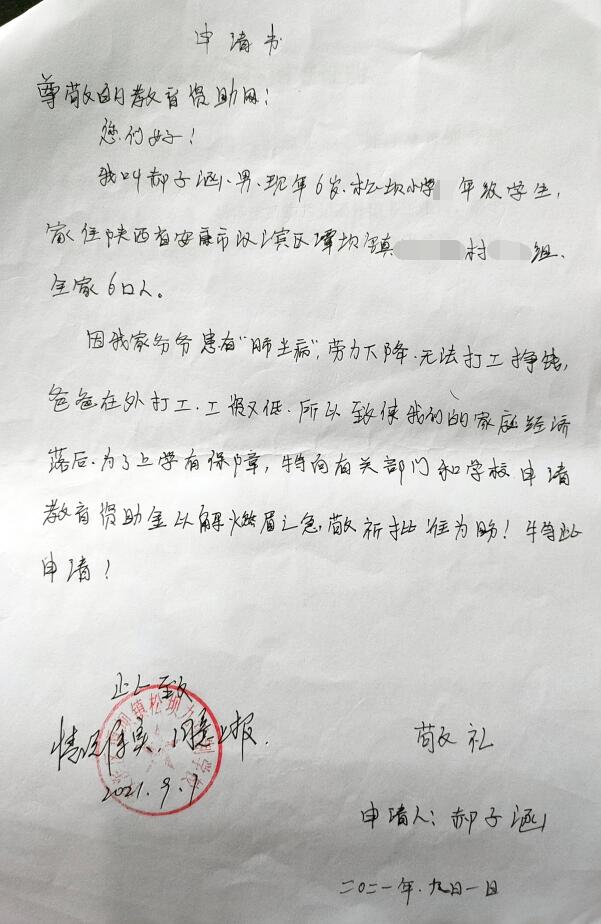 申请书
尊敬的教育资助网：
您们好！
我叫郝子涵、男、现年6岁、松坝小学 年级学生，
家住陕西省安康市汉滨区谭坝镇 村 组、
全家6口人。
因我家爷爷患有“肺尘病”，劳力下降、无法打工挣钱，
爸爸在外打工、工资又低、所以致使我们的家庭经济
落后、为了上学有保障，特向有关部门和学校申请
教育资助金以解燃眉之急、敬祈批准为盼！特此
申请！
此致
情况属实，同意上报.
2021.9.1
敬礼
申请人：郝子涵
二〇二一年、九月一日